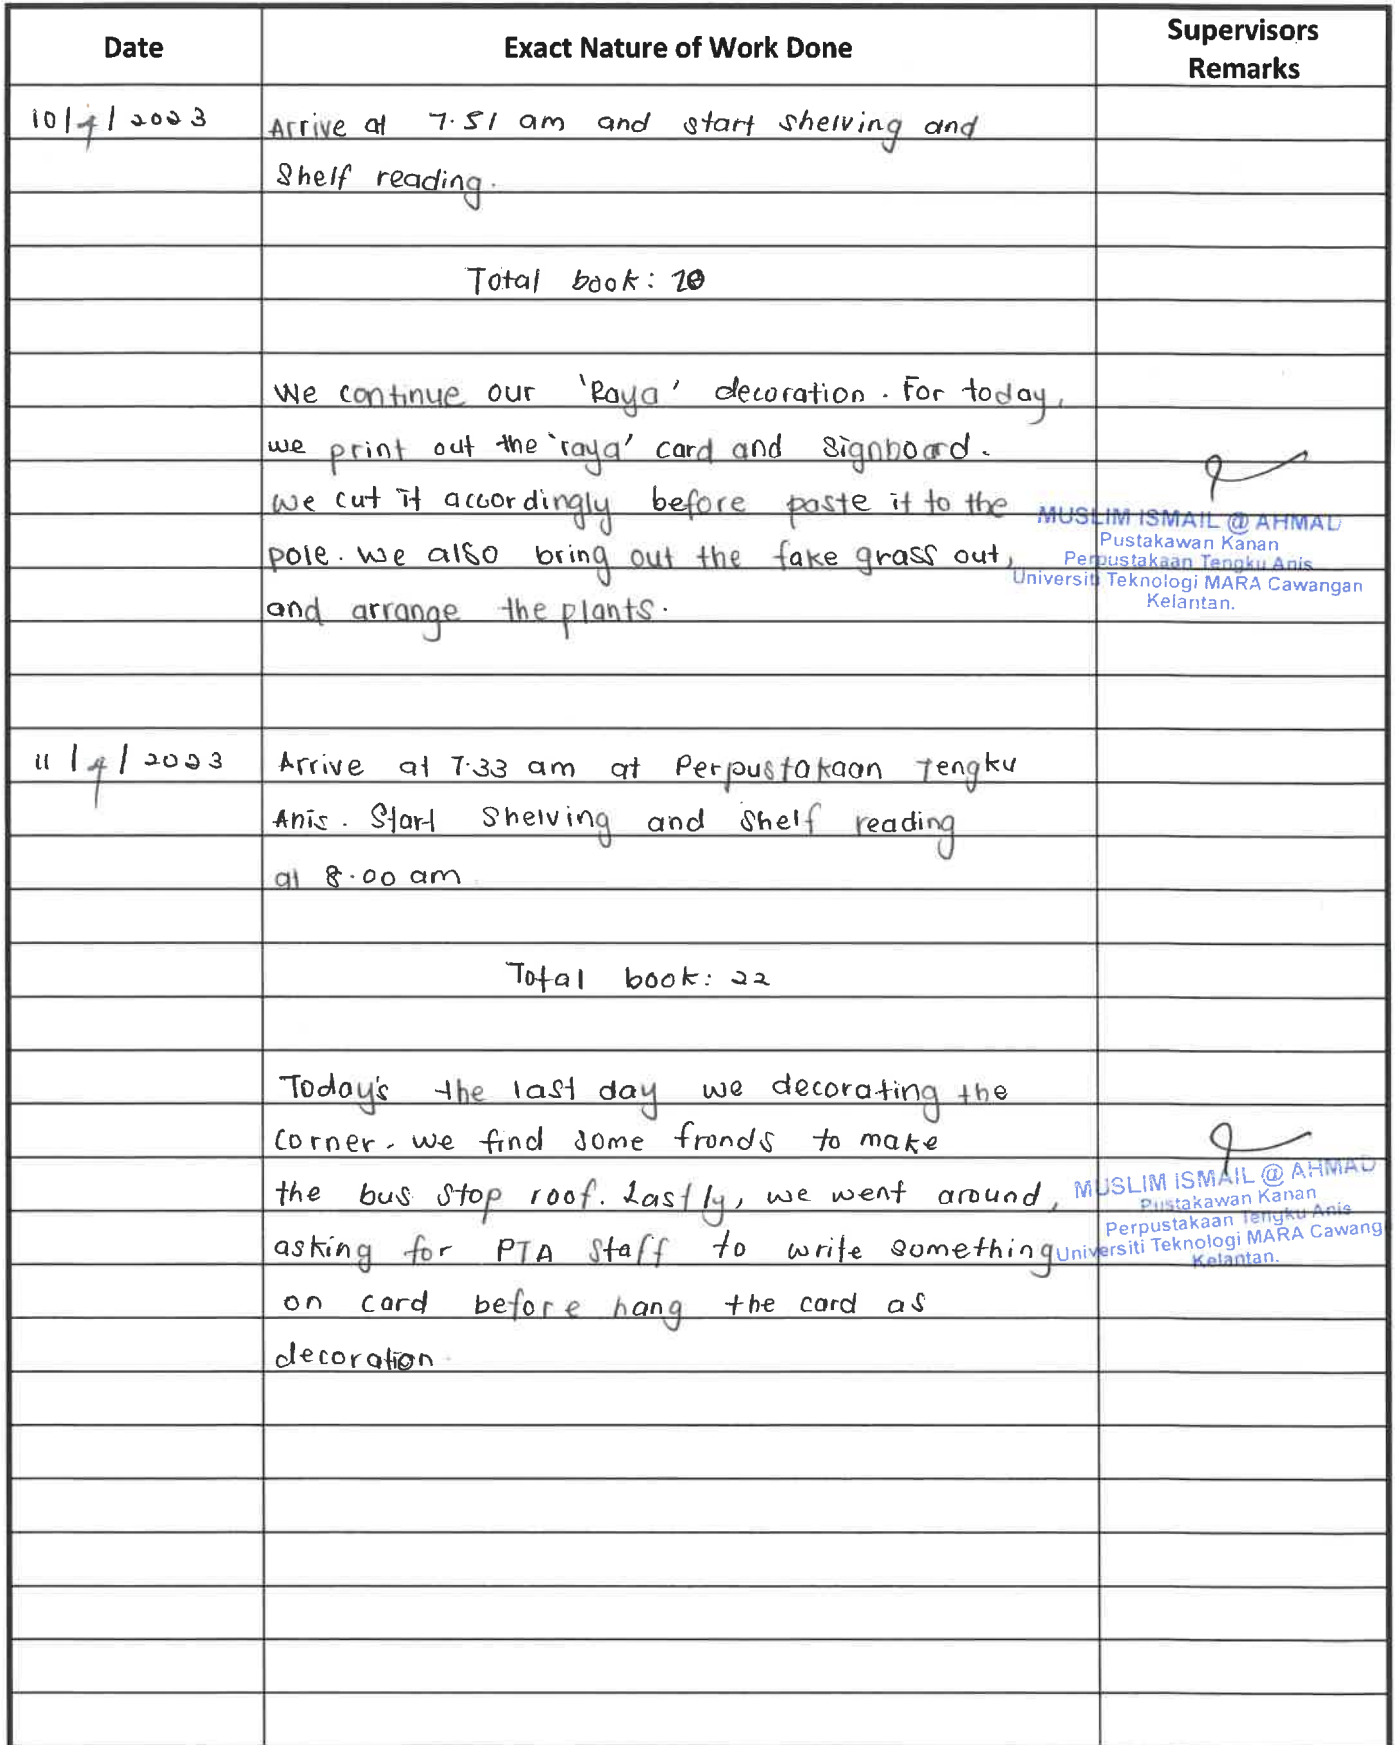 Date Exact Nature of Work Done Supervisors Remarks
10/4/2023 Arrive at 7.51 am and start shelving and
Shelf reading.
Total book: 20
We continue our 'Raya' decoration. For today,
we print out the 'raya' card and signboard.
we cut it accordingly before paste it to the
pole. we also bring out the fake grass out,
and arrange the plants.
MUSLIM ISMAIL @ AHMAD
Pustakawan Kanan
Perpustakaan Tengku Anis
Universiti Teknologi MARA Cawangan
Kelantan.
11/4/2023 Arrive at 7.33 am at Perpustakaan Tengku
Anis. Start Shelving and Shelf reading
at 8.00 am
Total book: 22
Today's the last day we decorating the
corner. we find some fronds to make
the bus stop roof. Lastly, we went around,
asking for PTA Staff to write something
on card before hang the card as
decoration.
MUSLIM ISMAIL @ AHMAD
Pustakawan Kanan
Perpustakaan Tengku Anis
Universiti Teknologi MARA Cawang
Kelantan.